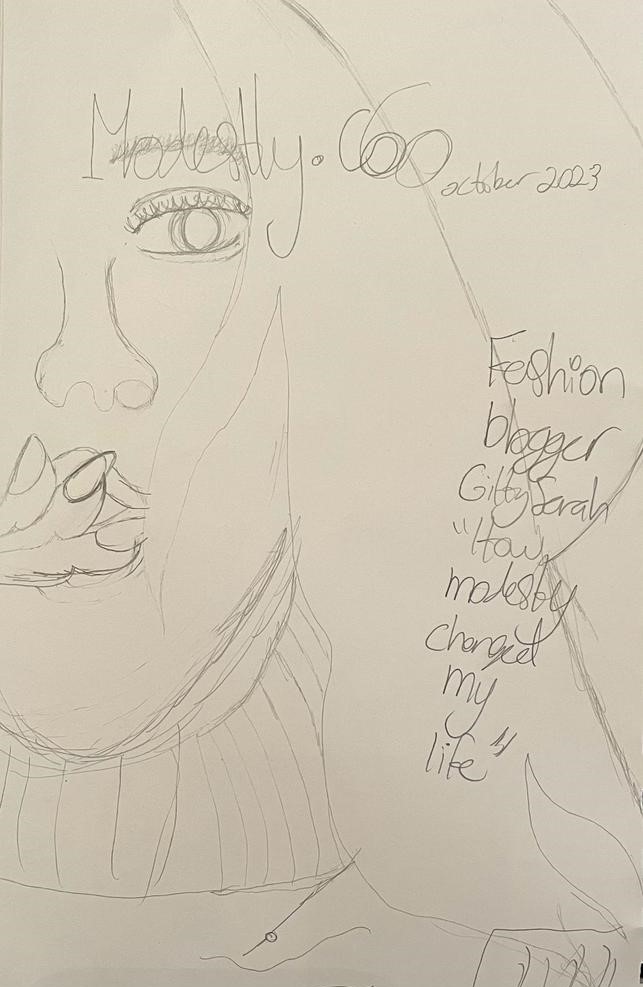 Modestly.Coo
october 2023
Feshion
blogger
Gitty Sarah
"How
modesty
changed
my
life"